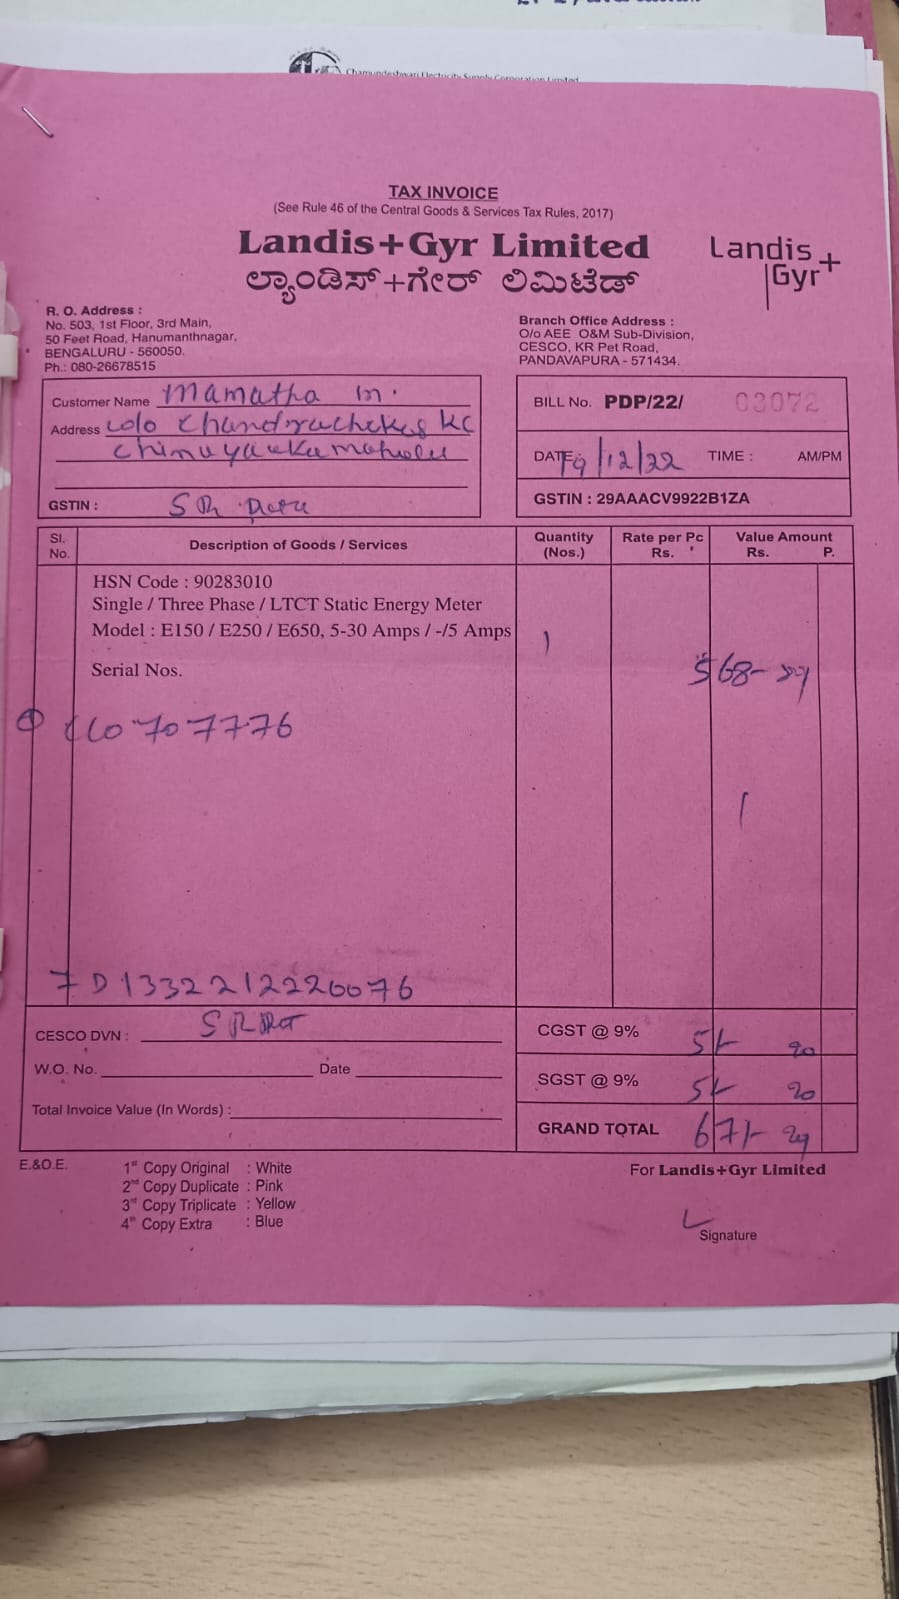 Chamundeshwari Electricity Supply Corporation Limited
TAX INVOICE
(See Rule 46 of the Central Goods & Services Tax Rules, 2017)
Landis+Gyr Limited
ಲ್ಯಾಂಡಿಸ್+ಗೇರ್ ಲಿಮಿಟೆಡ್
Landis
Gyr+
R. O. Address :
No. 503, 1st Floor, 3rd Main,
50 Feet Road, Hanumanthnagar,
BENGALURU - 560050.
Ph.: 080-26678515
Branch Office Address :
O/o AEE O&M Sub-Division,
CESCO, KR Pet Road,
PANDAVAPURA - 571434.
Customer Name Mamatha m.
Address
GSTIN :
BILL No. PDP/22/ 03072
DATE: 19/12/22 TIME : AM/PM
GSTIN : 29AAACV9922B1ZA
Sl. No. Description of Goods / Services Quantity (Nos.) Rate per Pc Rs. Value Amount Rs. P.
HSN Code : 90283010
Single / Three Phase / LTCT Static Energy Meter
Model : E150 / E250 / E650, 5-30 Amps / -/5 Amps 1
Serial Nos. 568-
7D1332212220076
CESCO DVN :
W.O. No. Date
Total Invoice Value (In Words) :
CGST @ 9% 20
SGST @ 9% 20
GRAND TOTAL 671-
E.&O.E.
1st Copy Original : White
2nd Copy Duplicate : Pink
3rd Copy Triplicate : Yellow
4th Copy Extra : Blue
For Landis+Gyr Limited
Signature